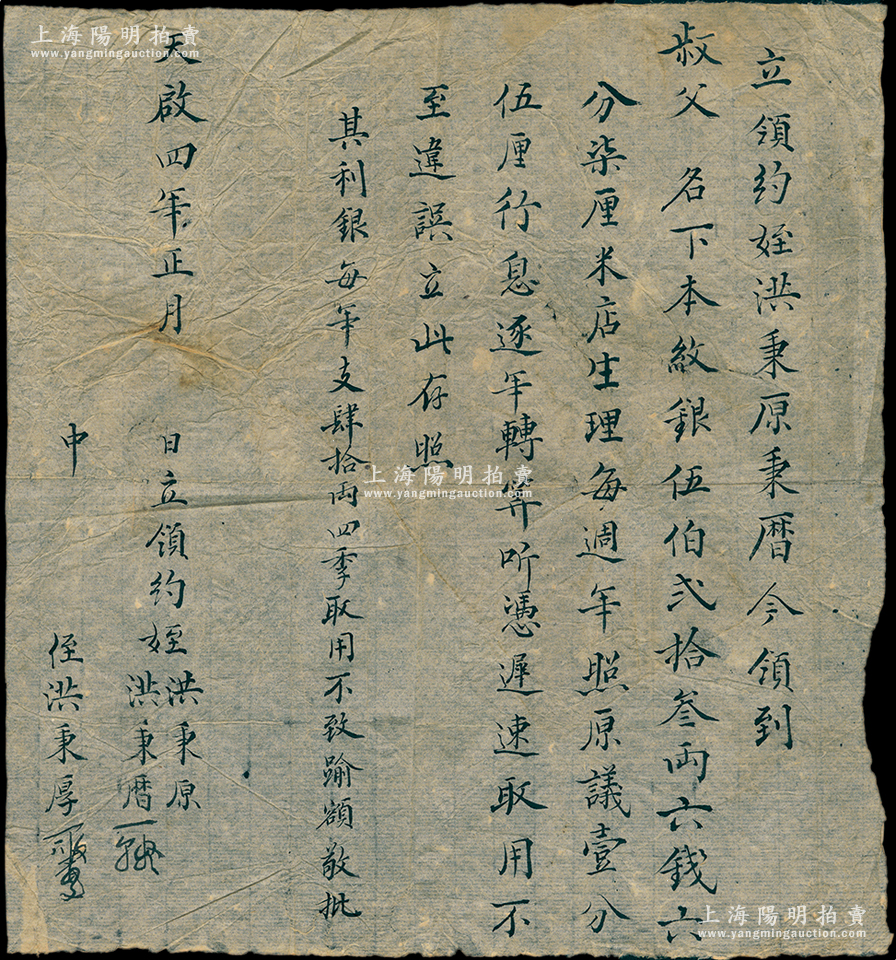 立領約姪洪秉原秉曆今領到
叔父 名下本紋銀伍伯弍拾叁両六錢六
分柒厘米店生理每週年照原議壹分
伍厘行息逐年轉筭听憑遲速取用不
至違誤立此存照
其利銀每年支肆拾両四季取用不致踰額敬批
天啟四年正月 日立領約姪洪秉原
洪秉曆
中 侄洪秉厚
上海陽明拍賣
www.yangmingauction.com
上海陽明拍賣
www.yangmingauction.com
上海陽明拍賣
www.yangmingauction.com